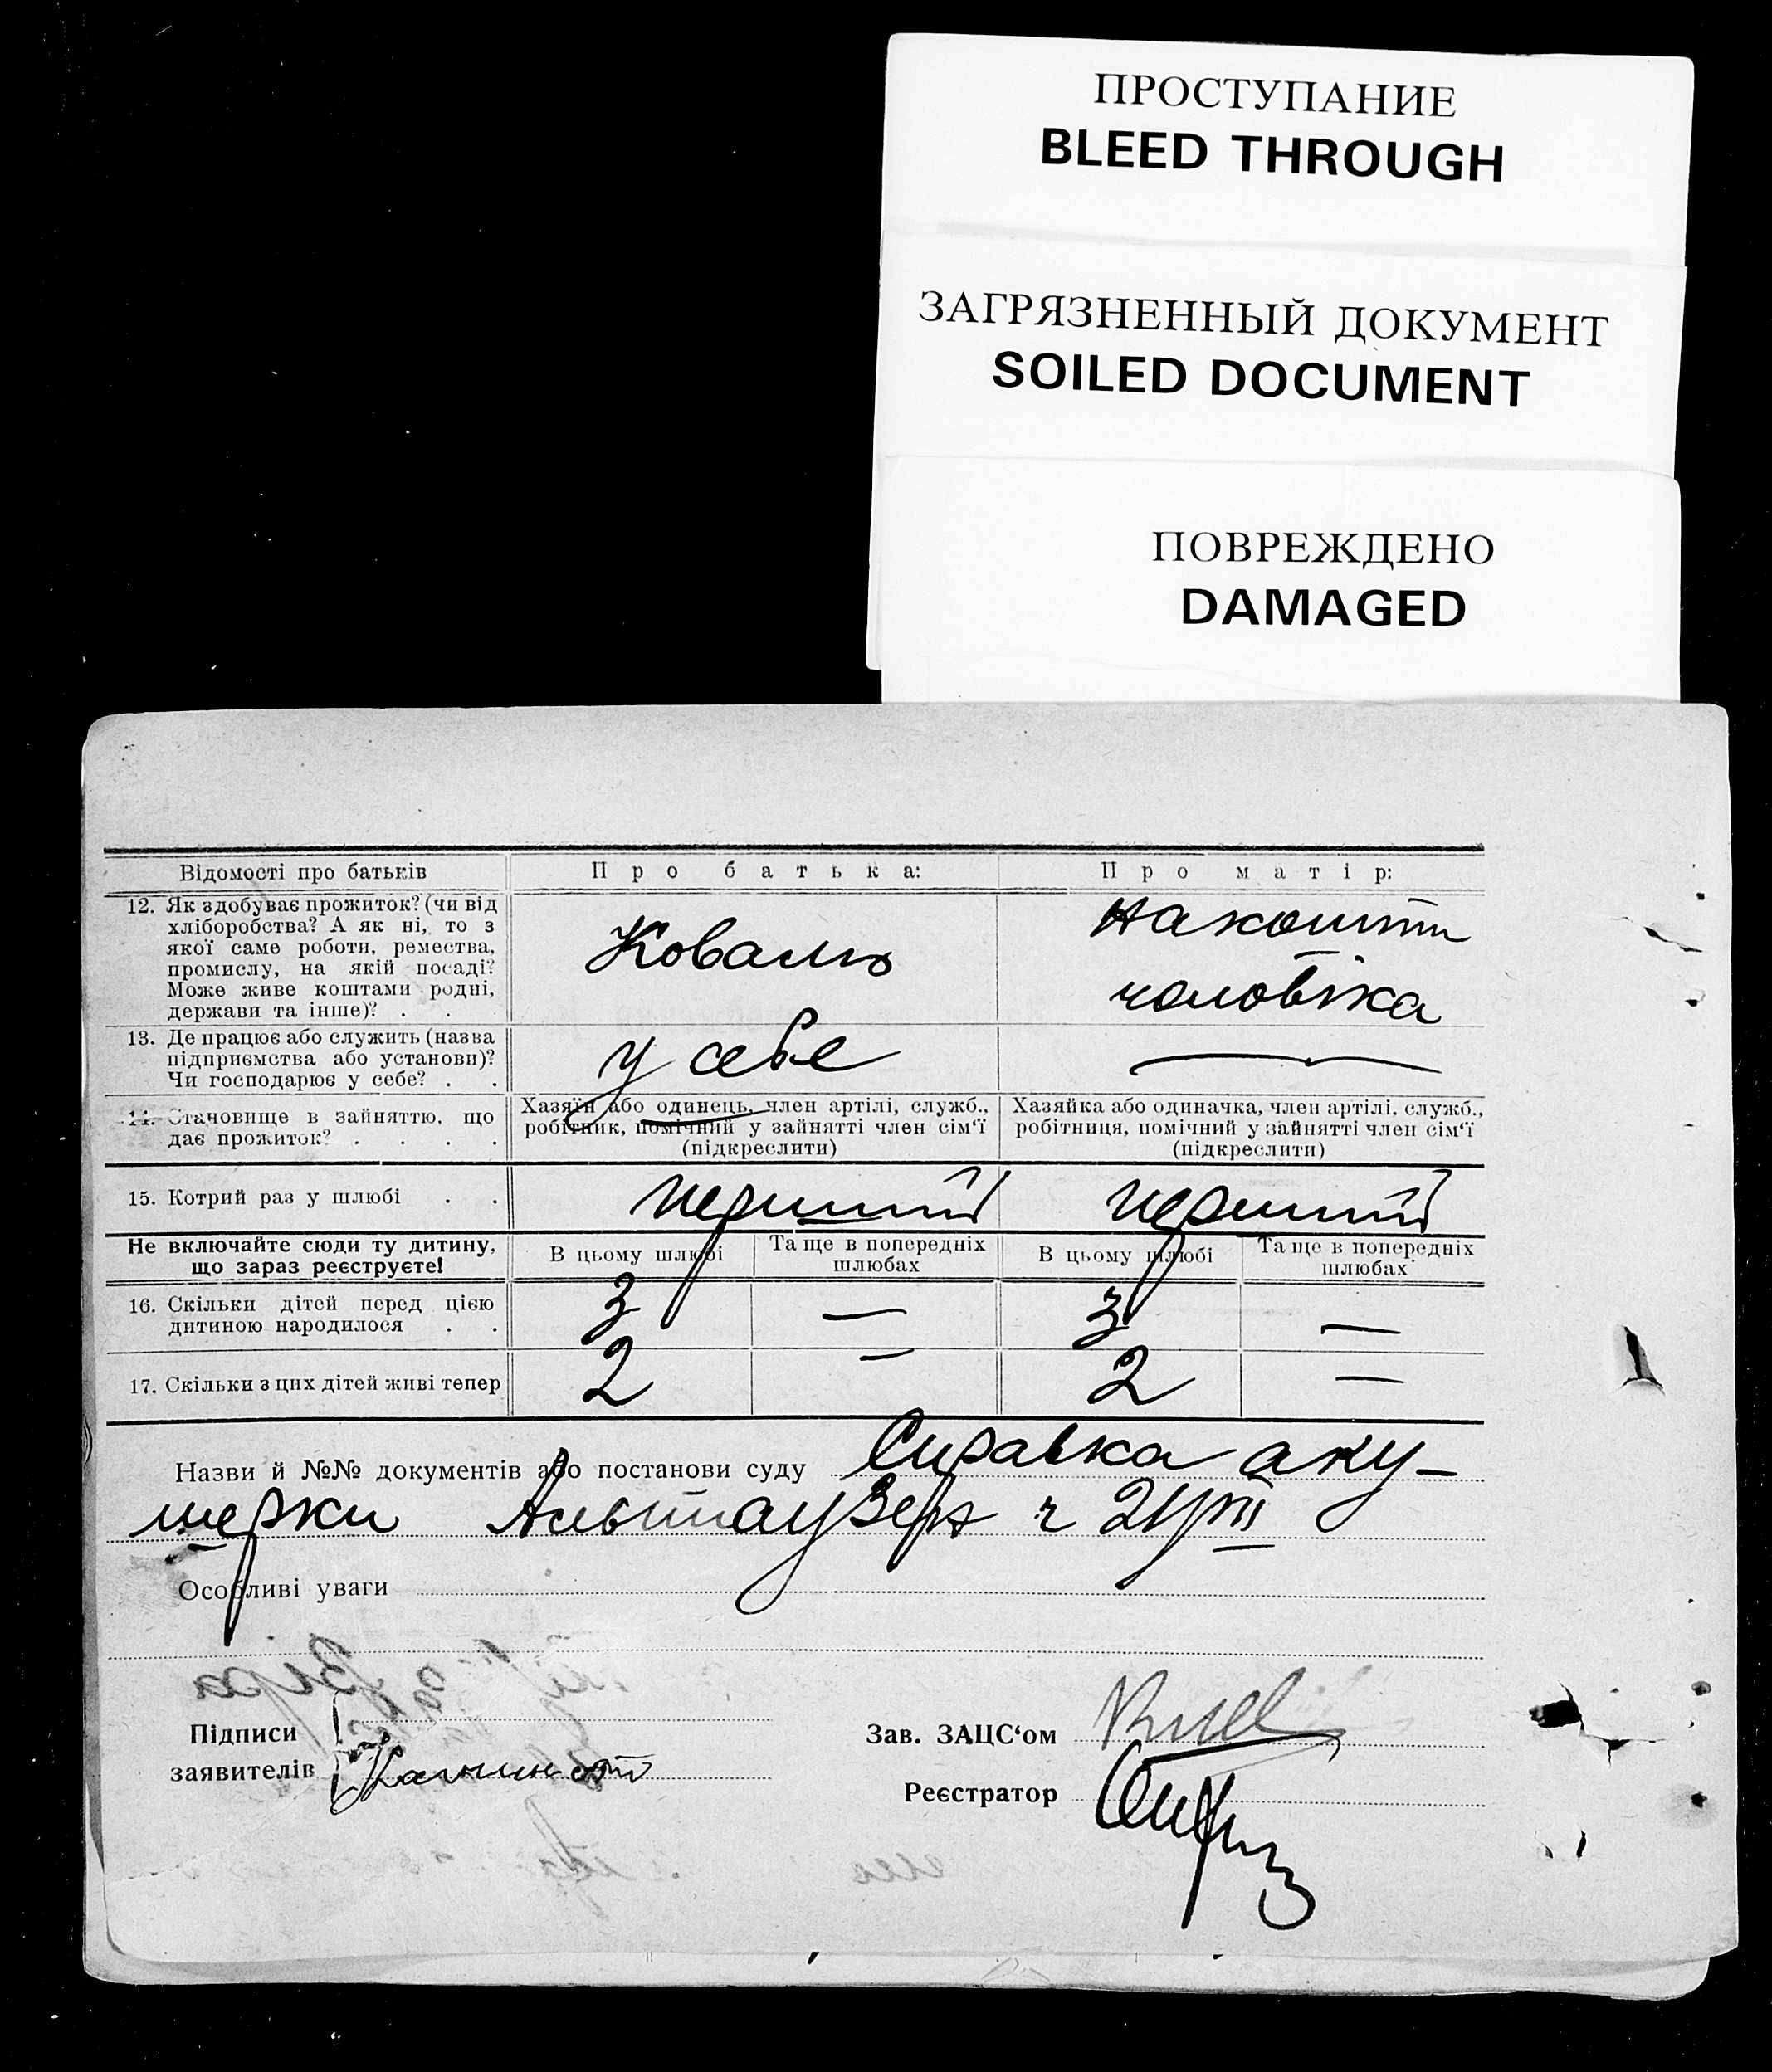 ПРОСТУПАНИЕ
BLEED THROUGH
ЗАГРЯЗНЕННЫЙ ДОКУМЕНТ
SOILED DOCUMENT
ПОВРЕЖДЕНО
DAMAGED
Відомості про батьків
Про батька:
Про матір:
12. Як здобуває прожиток? (чи від
хліборобства? А як ні, то з
якої саме роботи, ремества,
промислу, на якій посаді?
Може живе коштами родні,
держави та інше)? . .
Коваль
на кошти
чоловіка
13. Де працює або служить (назва
підприємства або установи)?
Чи господарює у себе? . .
у себе
—
14. Становище в зайняттю, що
дає прожиток? . . . .
Хазяїн або одинець, член артілі, служб.,
робітник, помічний у зайнятті член сім'ї
(підкреслити)
Хазяйка або одиначка, член артілі, служб.,
робітниця, помічний у зайнятті член сім'ї
(підкреслити)
15. Котрий раз у шлюбі . .
перший
перший
Не включайте сюди ту дитину,
що зараз реєструєте!
В цьому шлюбі
Та ще в попередніх
шлюбах
В цьому шлюбі
Та ще в попередніх
шлюбах
16. Скільки дітей перед цією
дитиною народилося . .
3 — 3 —
17. Скільки з цих дітей живі тепер
2 — 2 —
Назви й №№ документів або постанови суду Справка аку-
шерки
Особливі уваги
Підписи
заявителів
Зав. ЗАЦС'ом
Реєстратор